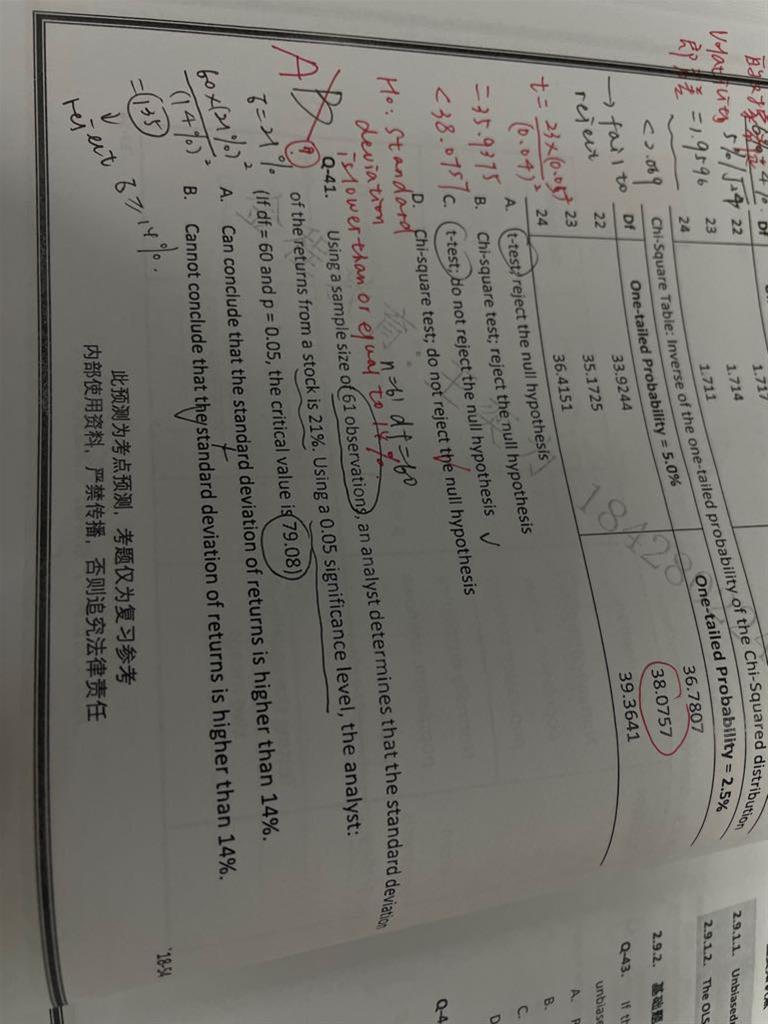 Df
22 1.717
23 1.714
24 1.711
Chi-Square Table: Inverse of the one-tailed probability of the Chi-Squared distribution
Df One-tailed Probability = 5.0% One-tailed Probability = 2.5%
22 33.9244 36.7807
23 35.1725 38.0757
24 36.4151 39.3641
5%
= 1.9596
< 2.069
→ fail to
reject
= 35.9375
< 38.0757
A. t-test; reject the null hypothesis
B. Chi-square test; reject the null hypothesis ✓
C. t-test; do not reject the null hypothesis
D. Chi-square test; do not reject the null hypothesis
H0: Standard
deviation
is lower than or equal to 14%.
n=61 df=60
A
Q-41. Using a sample size of 61 observations, an analyst determines that the standard deviation
of the returns from a stock is 21%. Using a 0.05 significance level, the analyst:
(If df = 60 and p = 0.05, the critical value is 79.08)
A. Can conclude that the standard deviation of returns is higher than 14%.
B. Cannot conclude that the standard deviation of returns is higher than 14%.
60×(21%)²
(14%)²
= 135
reject
此预测为考点预测，考题仅为复习参考
内部使用资料，严禁传播，否则追究法律责任
'18-54
2.9.1.1. Unbiased
2.9.1.2. The OLS
2.9.2. 基础题
Q-43. If th
unbiase
A.
B.
C.
D
Q-4